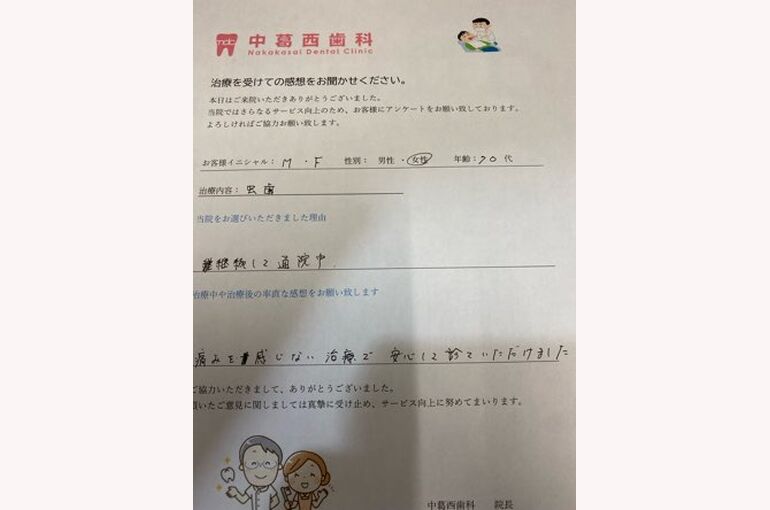 ndc 中葛西歯科
Nakakasai Dental Clinic
治療を受けての感想をお聞かせください。
本日はご来院いただきありがとうございました。
当院ではさらなるサービス向上のため、お客様にアンケートをお願い致しております。
よろしければご協力お願い致します。
お客様イニシャル： M ・ F 性別： 男性 ・ 女性 年齢：70 代
治療内容： 虫歯
当院をお選びいただきました理由
継続して通院中.
治療中や治療後の率直な感想をお願い致します
痛みを感じない治療で 安心して診ていただけました
ご協力いただきまして、ありがとうございました。
頂いたご意見に関しましては真摯に受け止め、サービス向上に努めてまいります。
中葛西歯科 院長